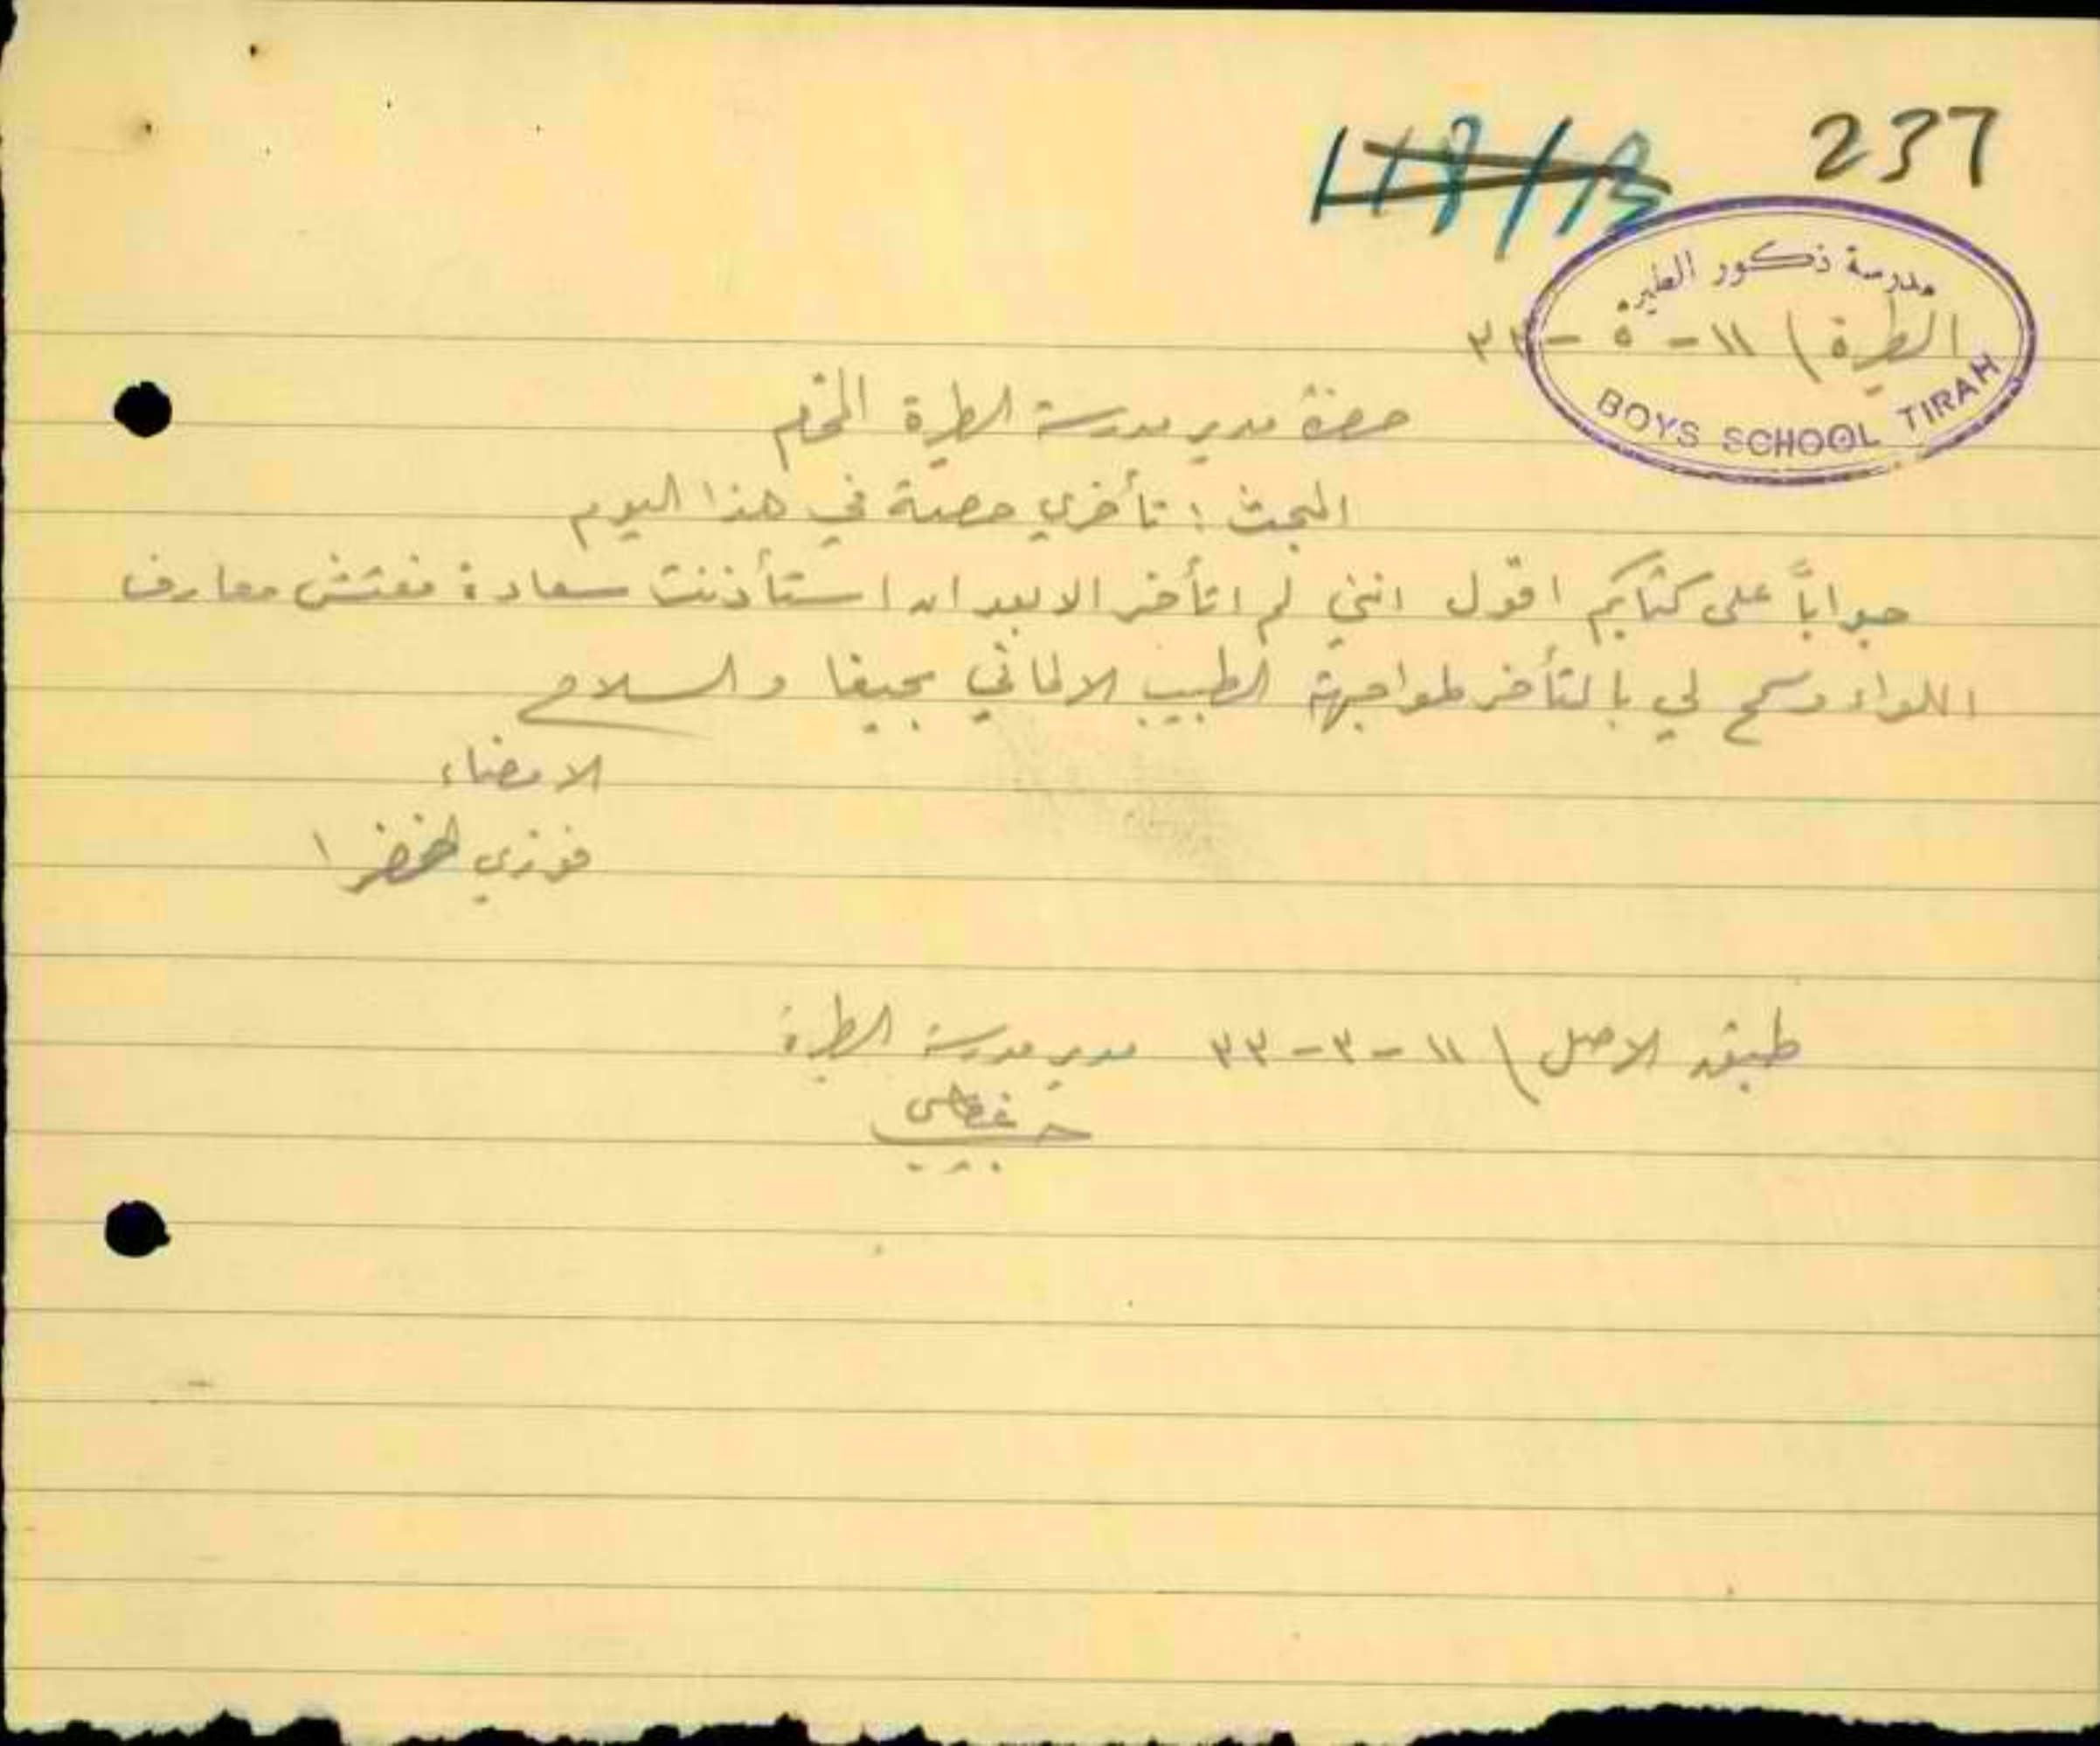 237
مدرسة ذكور الطيره
الطيرة / ١١ - ٥ - ٣٣
BOYS SCHOOL TIRAH
حضرة مدير مدرسة الطيرة المحترم
البحث : تأخري حصة في هذا اليوم
جواباً على كتابكم اقول انني لم اتأخر الا بعد ان استأذنت سعادة مفتش معارف
اللواء وسمح لي بالتأخر لمواجهة الطبيب الالماني بحيفا والسلام
الامضاء
فوزي الخضرا
طبق الاصل / ١١ - ٣ - ٣٣ مدير مدرسة الطيرة